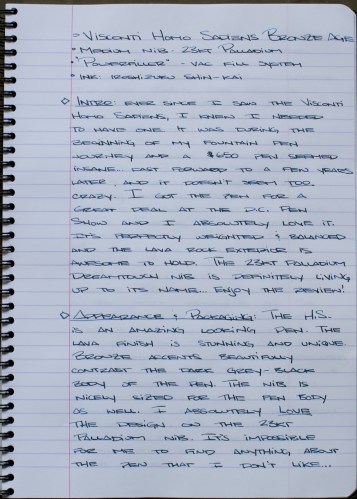 • Visconti Homo Sapiens Bronze Age
• Medium Nib - 23kt Palladium
• "Powerfiller" - Vac Fill System
• Ink: Iroshizuku Shin-Kai
◇ Intro: Ever since I saw the Visconti
Homo Sapiens, I knew I needed
to have one. It was during the
beginning of my fountain pen
journey and a $650 pen seemed
insane... Fast forward to a few years
later, and it doesn't seem too
crazy. I got the pen for a
great deal at the D.C. Pen
Show and I absolutely love it.
It's perfectly weighted & balanced
and the lava rock exterior is
awesome to hold. The 23kt Palladium
Dreamtouch nib is definitely living
up to its name... Enjoy the review!
◇ Appearance & Packaging: The H.S.
is an amazing looking pen. The
lava finish is stunning and unique.
Bronze accents beautifully
contrast the dark grey-black
body of the pen. The nib is
nicely sized for the pen body
as well. I absolutely love
the design on the 23kt
Palladium nib. It's impossible
for me to find anything about
the pen that I don't like...